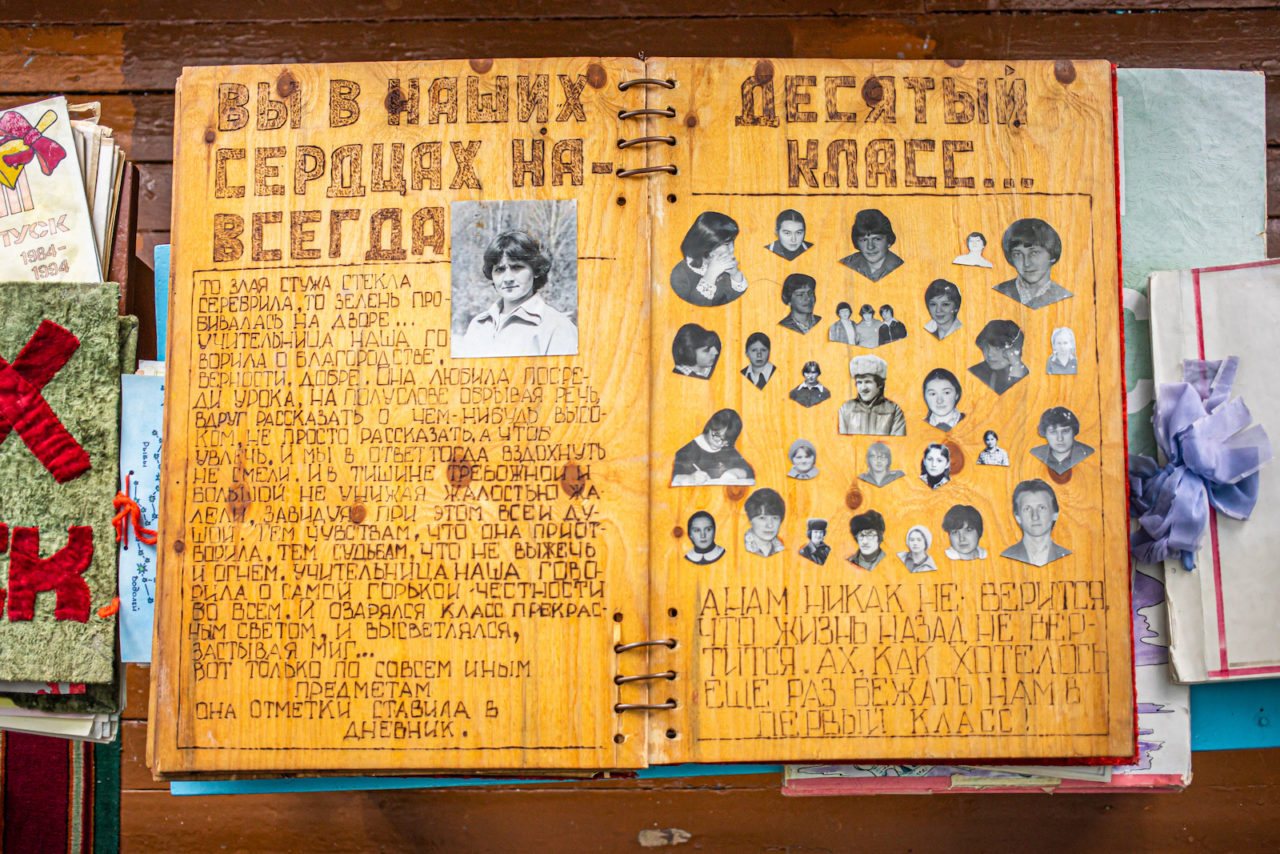 ВЫ В НАШИХ
СЕРДЦАХ НА-
ВСЕГДА
ТО ЗЛАЯ СТУЖА СТЕКЛА
СЕРЕБРИЛА, ТО ЗЕЛЕНЬ ПРО-
БИВАЛАСЬ НА ДВОРЕ...
УЧИТЕЛЬНИЦА НАША ГО
ВОРИЛА О БЛАГОРОДСТВЕ,
ВЕРНОСТИ, ДОБРЕ. ОНА ЛЮБИЛА ПОСРЕ-
ДИ УРОКА, НА ПОЛУСЛОВЕ ОБРЫВАЯ РЕЧЬ,
ВДРУГ РАССКАЗАТЬ О ЧЕМ-НИБУДЬ ВЫСО-
КОМ, НЕ ПРОСТО РАССКАЗАТЬ, А ЧТОБ
УВЛЕЧЬ. И МЫ В ОТВЕТ ТОГДА ВЗДОХНУТЬ
НЕ СМЕЛИ. И В ТИШИНЕ ТРЕВОЖНОЙ И
БОЛЬШОЙ, НЕ УНИЖАЯ ЖАЛОСТЬЮ ЖА-
ЛЕЛИ, ЗАВИДУЯ ПРИ ЭТОМ ВСЕЙ ДУ-
ШОЙ. ТЕМ ЧУВСТВАМ, ЧТО ОНА ПРИОТ-
ВОРИЛА, ТЕМ СУДЬБАМ, ЧТО НЕ ВЫЖЕЧЬ
И ОГНЕМ. УЧИТЕЛЬНИЦА НАША ГОВО-
РИЛА О САМОЙ ГОРЬКОЙ ЧЕСТНОСТИ
ВО ВСЕМ. И ОЗАРЯЛСЯ КЛАСС ПРЕКРАС-
НЫМ СВЕТОМ, И ВЫСВЕТЛЯЛСЯ,
ЗАСТЫВАЯ МИГ...
ВОТ ТОЛЬКО ПО СОВСЕМ ИНЫМ
ПРЕДМЕТАМ
ОНА ОТМЕТКИ СТАВИЛА В
ДНЕВНИК.
ДЕСЯТЫЙ
КЛАСС...
А НАМ НИКАК НЕ ВЕРИТСЯ,
ЧТО ЖИЗНЬ НАЗАД НЕ ВЕР-
ТИТСЯ. АХ, КАК ХОТЕЛОСЬ
ЕЩЕ РАЗ БЕЖАТЬ НАМ В
ПЕРВЫЙ КЛАСС!
1984-
1994
РЫБЫ
ВОДОЛЕЙ